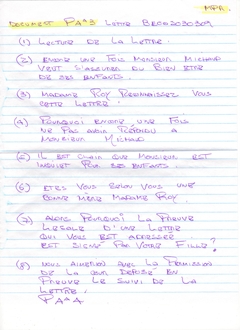 MPR
DOCUMENT PA*3 LETTRE
(1) LECTURE DE LA LETTRE.
(2) ENCORE UNE FOIS MONSIEUR MICHAUD
VEUT S'ASSURER DU BIEN ETRE
DE SES ENFANTS.
(3) MADAME ROY RECONNAISSEZ VOUS
CETTE LETTRE?
(4) POURQUOI ENCORE UNE FOIS
NE PAS AVOIR RÉPONDU A
MONSIEUR MICHAUD
(5) IL EST CLAIR QUE MONSIEUR EST
INQUIET POUR SES ENFANTS.
(6) ETES VOUS SELON VOUS UNE
BONNE MÈRE MADAME ROY.
(7) ALORS POURQUOI LA PREUVE
LÉGALE D'UNE LETTRE
QUI VOUS EST ADRESSÉE
EST SIGNÉ PAR VOTRE FILLE?
(8) NOUS AIMERION AVEC LA PERMISSION
DE LA COUR DÉPOSÉ EN
PREUVE LE SUIVI DE LA
LETTRE.
PA*4